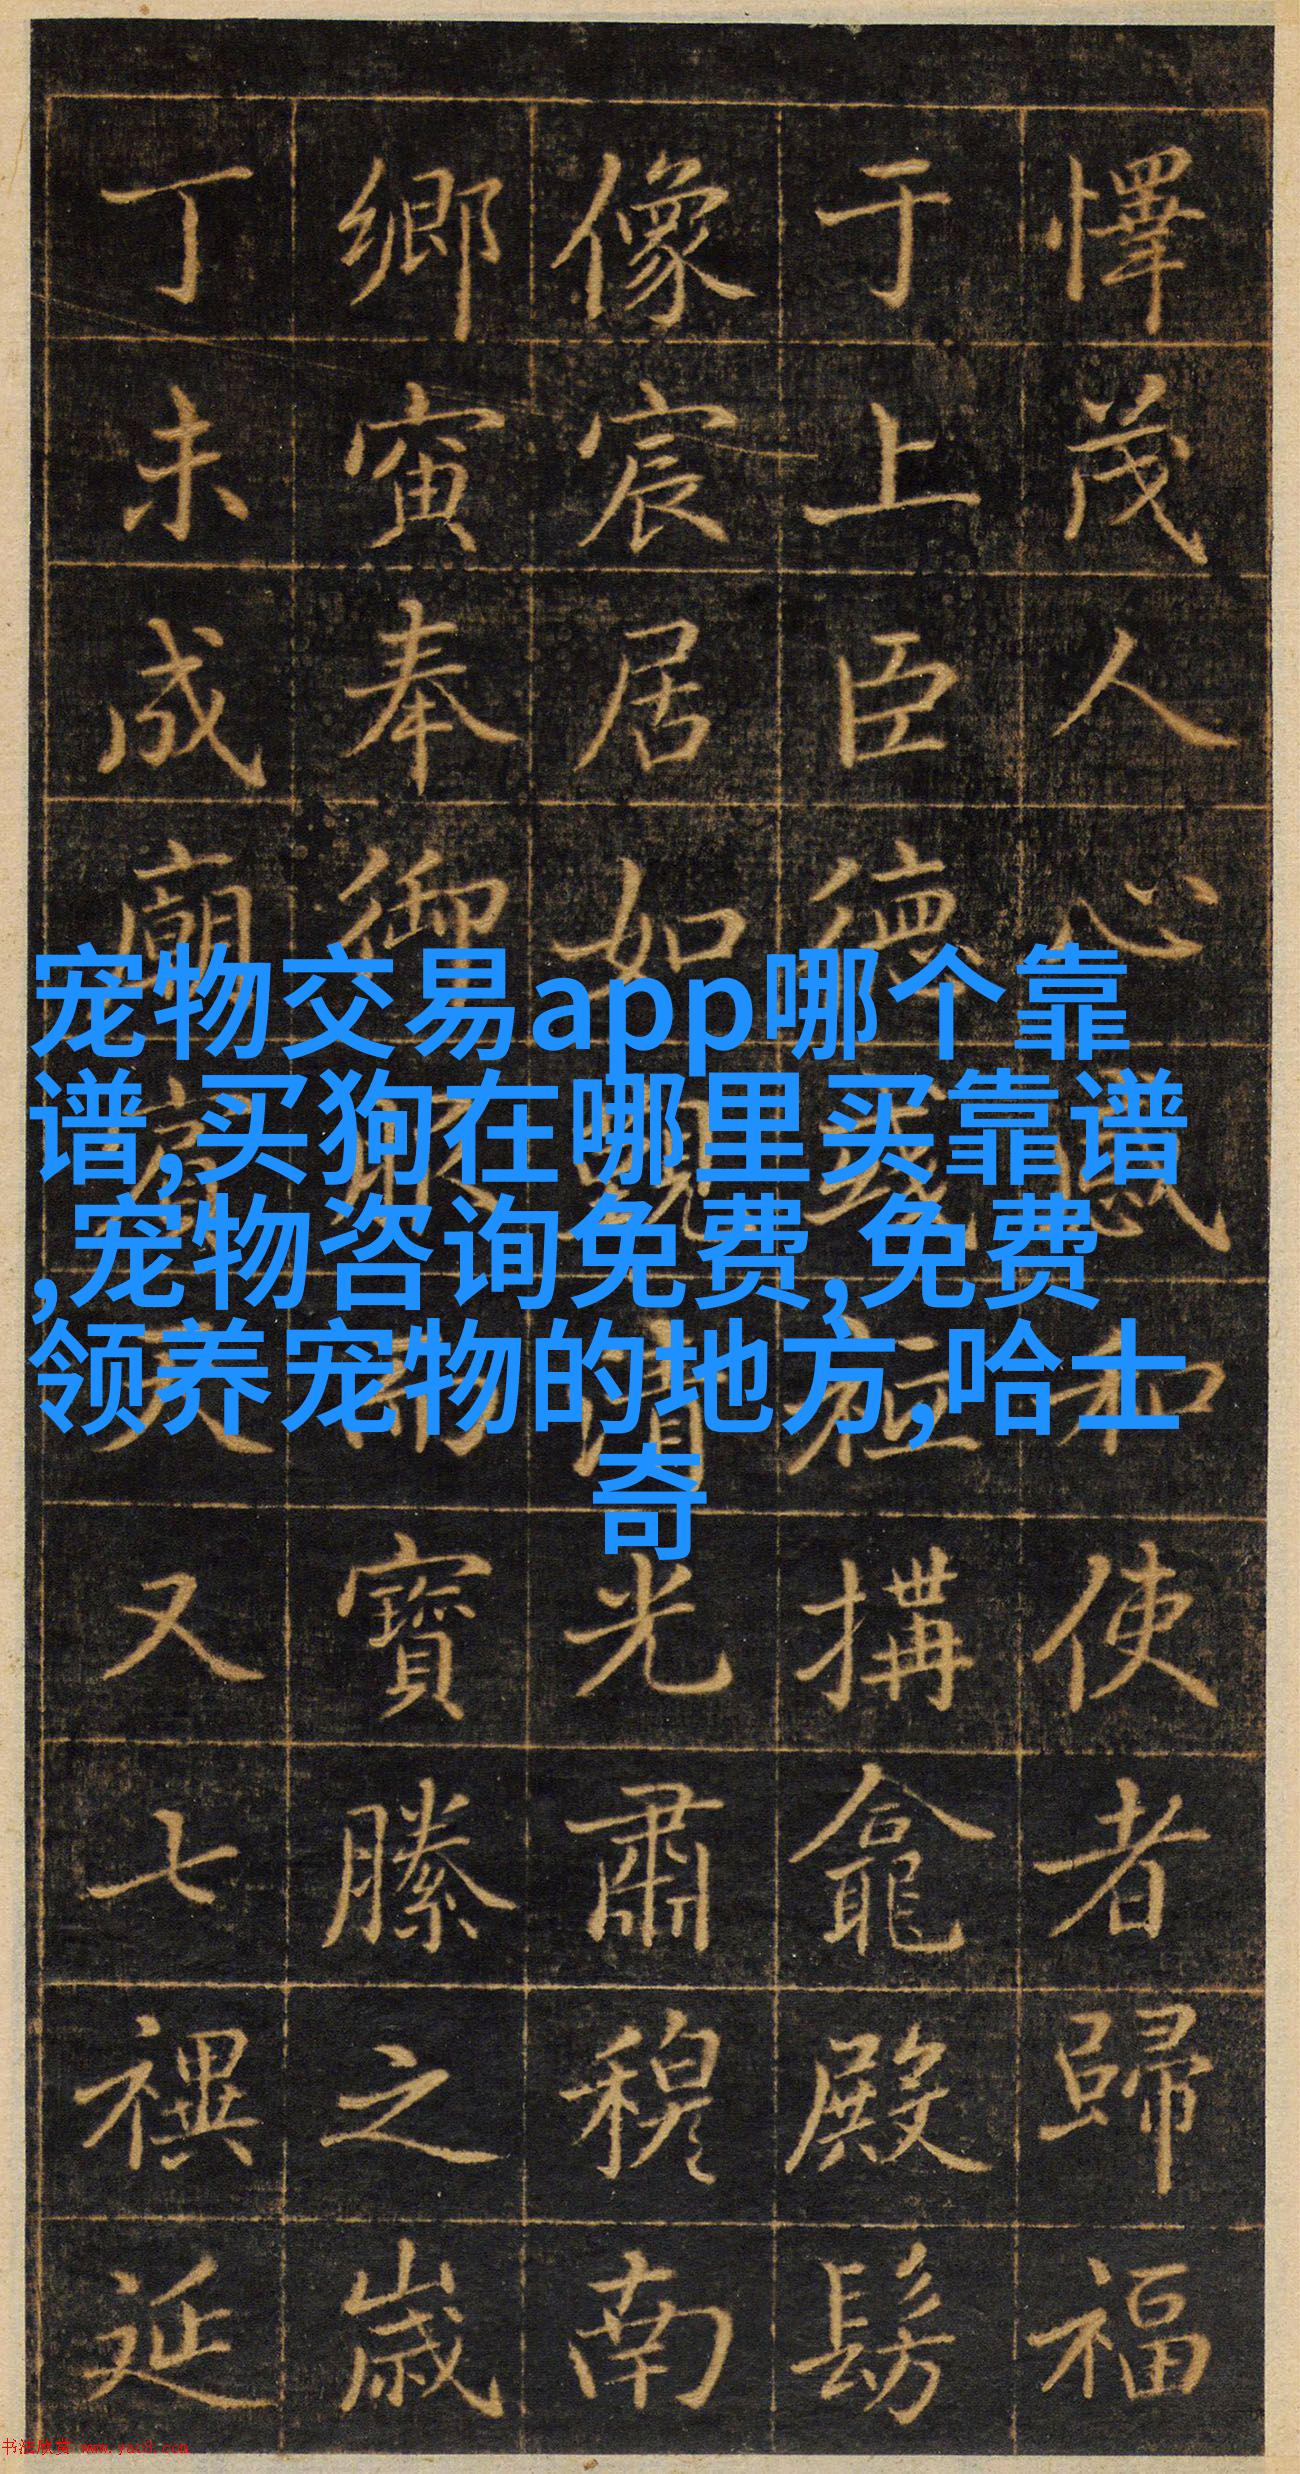 懌茂人心感和使者歸福
于上臣德搆龕殿髣
像宸居如觀清光肅穆南
鄉寅奉御寶縢之歲
丁未成廟又七禩延
宠物交易app哪个靠
谱,买狗在哪里买靠谱
,宠物咨询免费,免费
领养宠物的地方,哈士
奇
书法欣赏 www.yac8.com